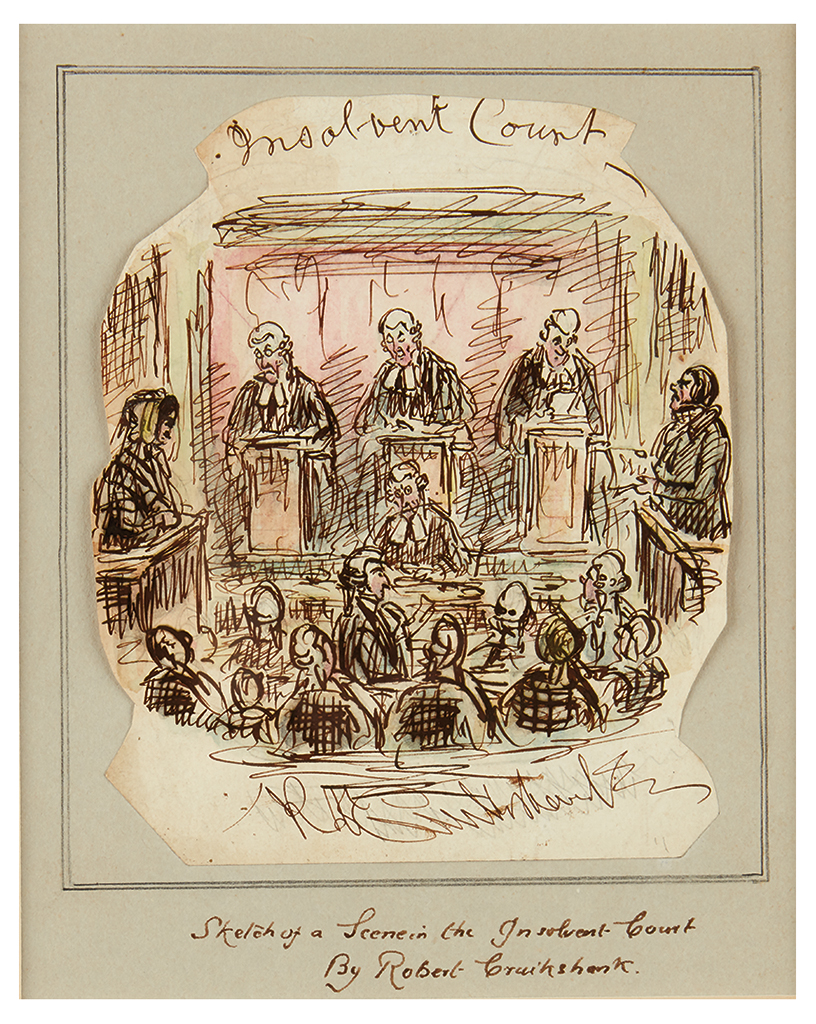 Insolvent Court
Sketch of a Scene in the Insolvent Court
By Robert Cruikshank.